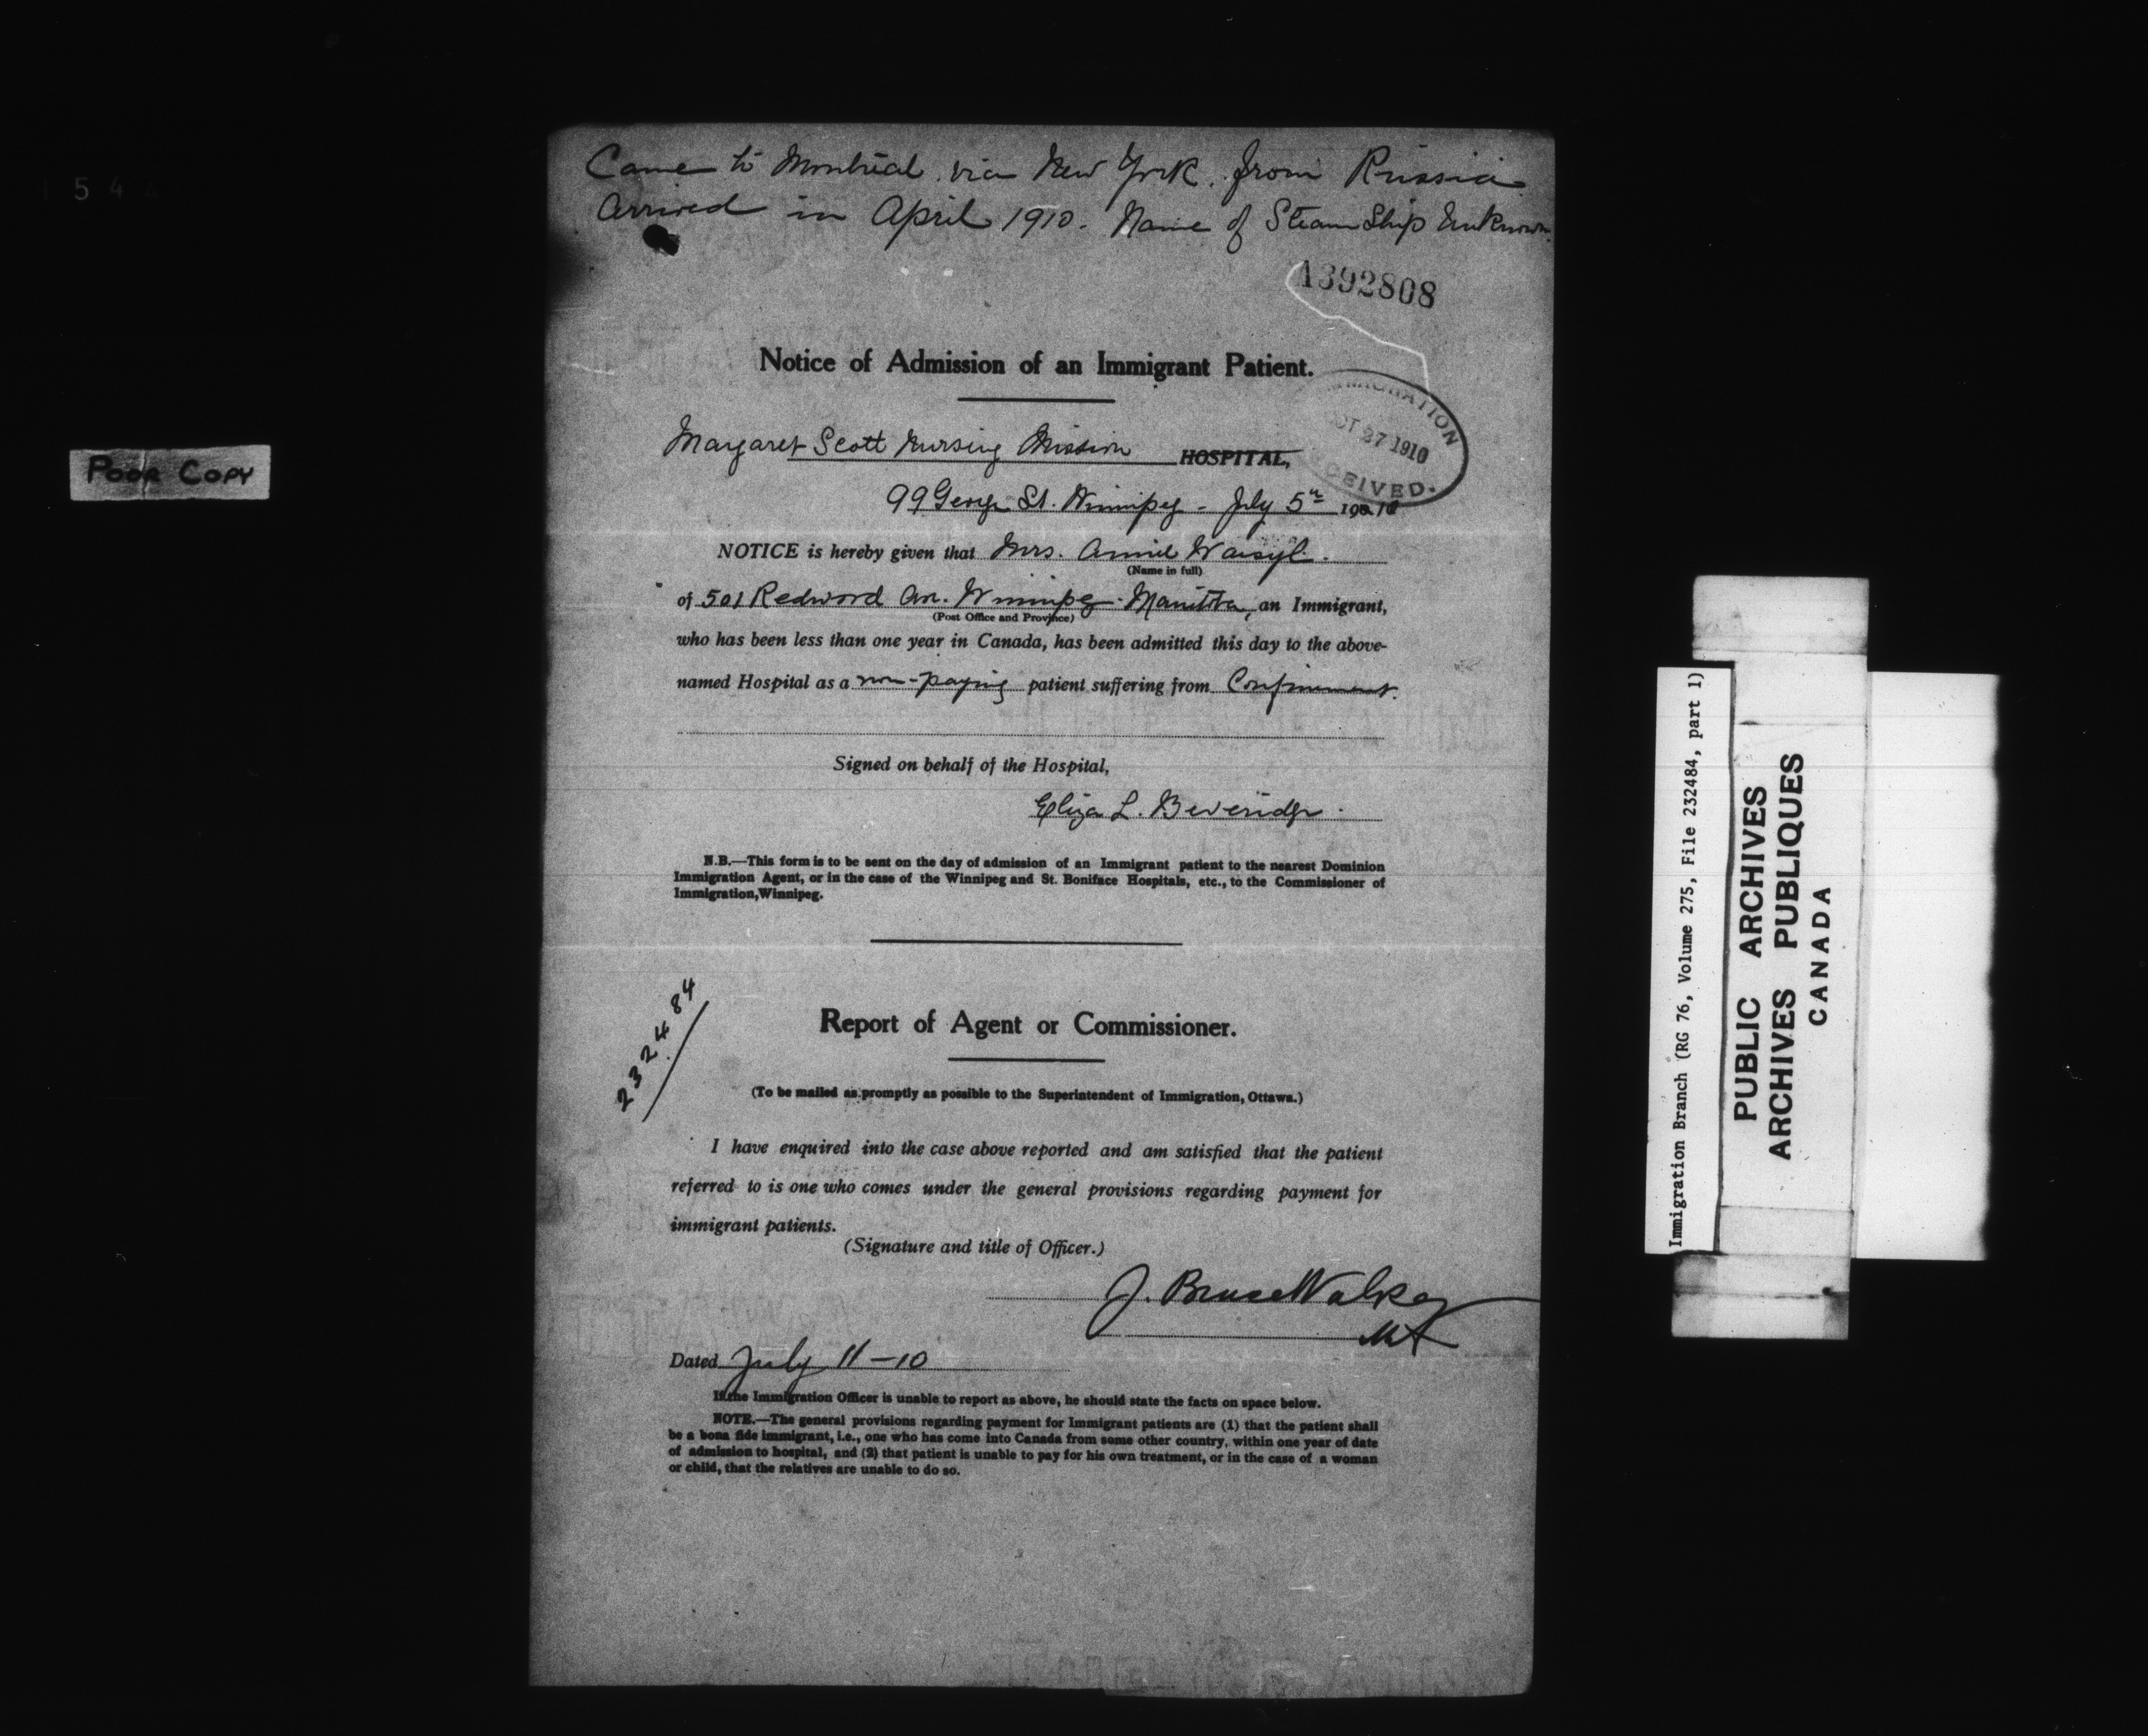 Came to Montreal via New York. from Russia
Arrived in April 1910. Name of Steam Ship Unknown.
1392808
Notice of Admission of an Immigrant Patient.
IMMIGRATION
27 1910
RECEIVED.
Margaret Scott Nursing Mission HOSPITAL,
99 George St. Winnipeg - July 5th 1910
NOTICE is hereby given that Mrs. Annie Wasyl.
(Name in full)
of 501 Redwood Av. Winnipeg Manitba, an Immigrant,
(Post Office and Province)
who has been less than one year in Canada, has been admitted this day to the above-
named Hospital as a non-paying patient suffering from Confinement.
Signed on behalf of the Hospital,
Eliza L. Beveridge.
N.B.—This form is to be sent on the day of admission of an Immigrant patient to the nearest Dominion
Immigration Agent, or in the case of the Winnipeg and St. Boniface Hospitals, etc., to the Commissioner of
Immigration, Winnipeg.
232484
Report of Agent or Commissioner.
(To be mailed as promptly as possible to the Superintendent of Immigration, Ottawa.)
I have enquired into the case above reported and am satisfied that the patient
referred to is one who comes under the general provisions regarding payment for
immigrant patients.
(Signature and title of Officer.)
J. Bruce Walker
Dated July 11-10
If the Immigration Officer is unable to report as above, he should state the facts on space below.
NOTE.—The general provisions regarding payment for Immigrant patients are (1) that the patient shall
be a bona fide immigrant, i.e., one who has come into Canada from some other country, within one year of date
of admission to hospital, and (2) that patient is unable to pay for his own treatment, or in the case of a woman
or child, that the relatives are unable to do so.
POOR COPY
Immigration Branch (RG 76, Volume 275, File 232484, part 1)
PUBLIC ARCHIVES
ARCHIVES PUBLIQUES
CANADA